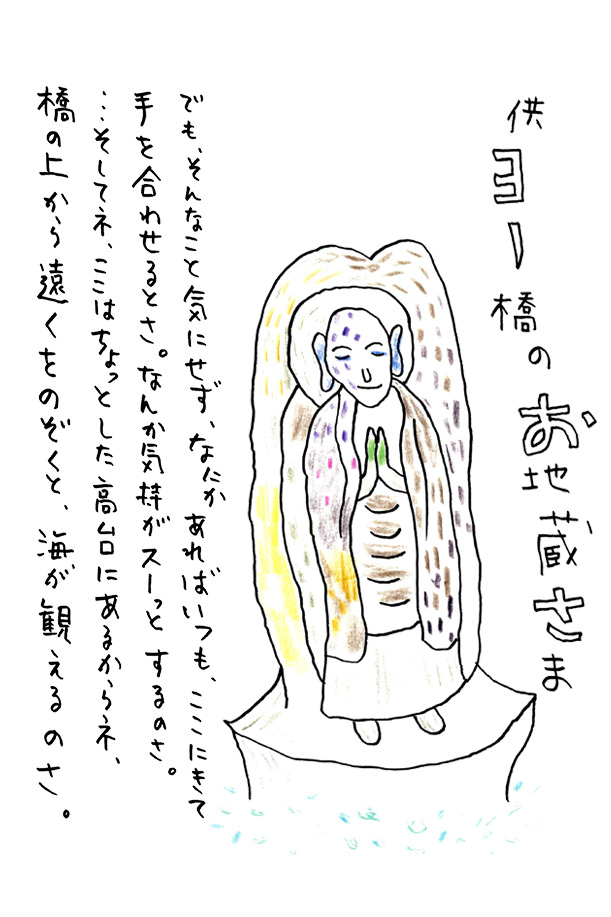 供ヨー橋のお地蔵さま
でも、そんなこと気にせず、なにかあればいつも、ここにきて
手を合わせるとさ。なんか気持がスーっとするのさ。
…そしてネ、ここはちょっとした高台にあるからネ、
橋の上から遠くをのぞくと、海が観えるのさ。